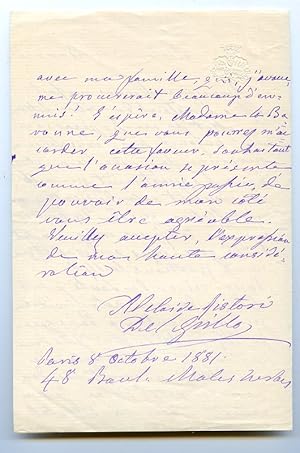 avec ma famille, qui, j'avoue,
me procurerait beaucoup d'en-
nuis! J'éspère, Madame la Ba-
ronne, que vous pourrez m'ac-
corder cette faveur, souhaitant
que l'occasion se présente
comme l'année de
pouvoir de mon côté
vous être agréable.
Veuillez accepter, l'expression
de ma haute considé-
ration
Adelaide Ristori
Del Grillo
Paris 8 Octobre 1881.
48 Boul. Malesherbes